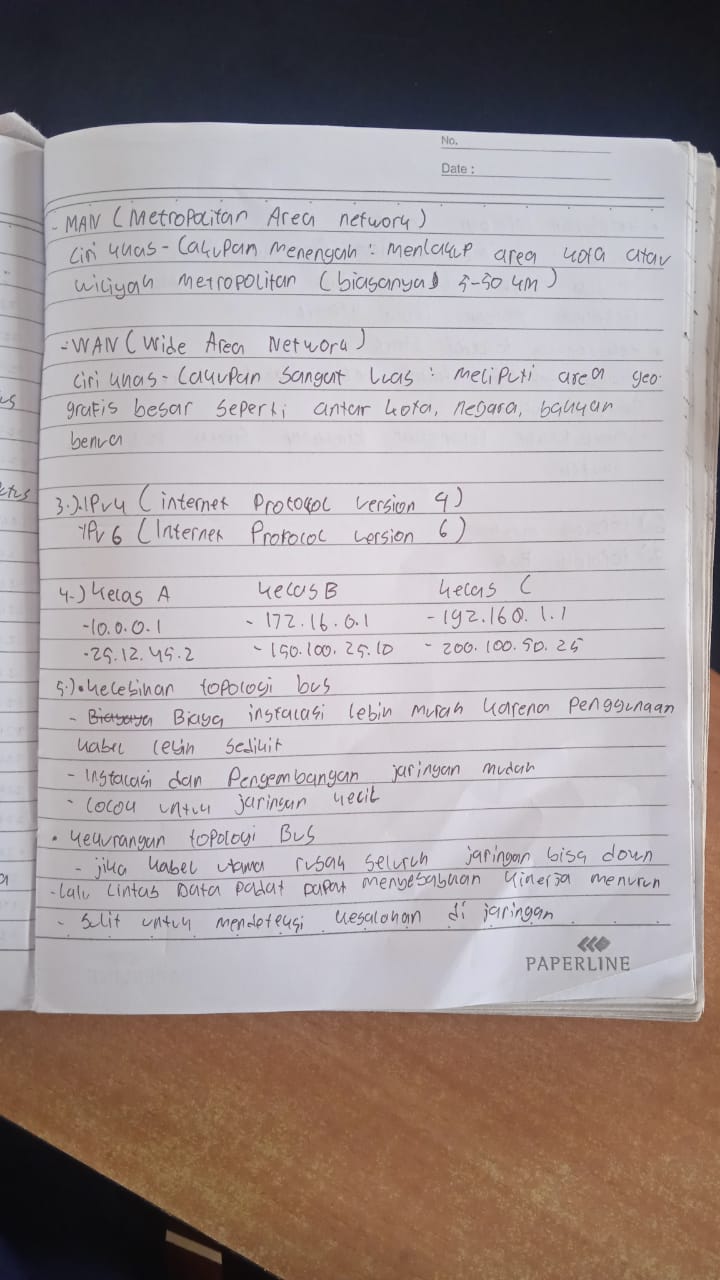 No.
Date :
- MAN (Metropolitan Area network)
Ciri khas - Cakupan menengah : Mencakup area kota atau
wiliyah metropolitan (biasanya 5-50 km)
- WAN (Wide Area Network)
Ciri khas - Cakupan Sangat luas : Meliputi area geo-
grafis besar seperti antar kota, negara, bahkan
benua
3.) IPv4 (internet Protocol version 4)
IPv6 (Internet Protocol version 6)
4.) Kelas A Kelas B Kelas C
- 10.0.0.1 - 172.16.0.1 - 192.160.1.1
- 25.12.45.2 - 150.100.25.10 - 200.100.50.25
5.) • Kelebihan topologi bus
- Biaya instalasi lebih murah karena Penggunaan
kabel lebih sedikit
- Instalasi dan Pengembangan jaringan mudah
- Cocok untuk jaringan kecil
• Kekurangan topologi Bus
- jika kabel utama rusak seluruh jaringan bisa down
- Lalu Lintas Data padat dapat menyebabkan kinerja menurun
- Sulit untuk mendeteksi kesalahan di jaringan
PAPERLINE
us
etus
a